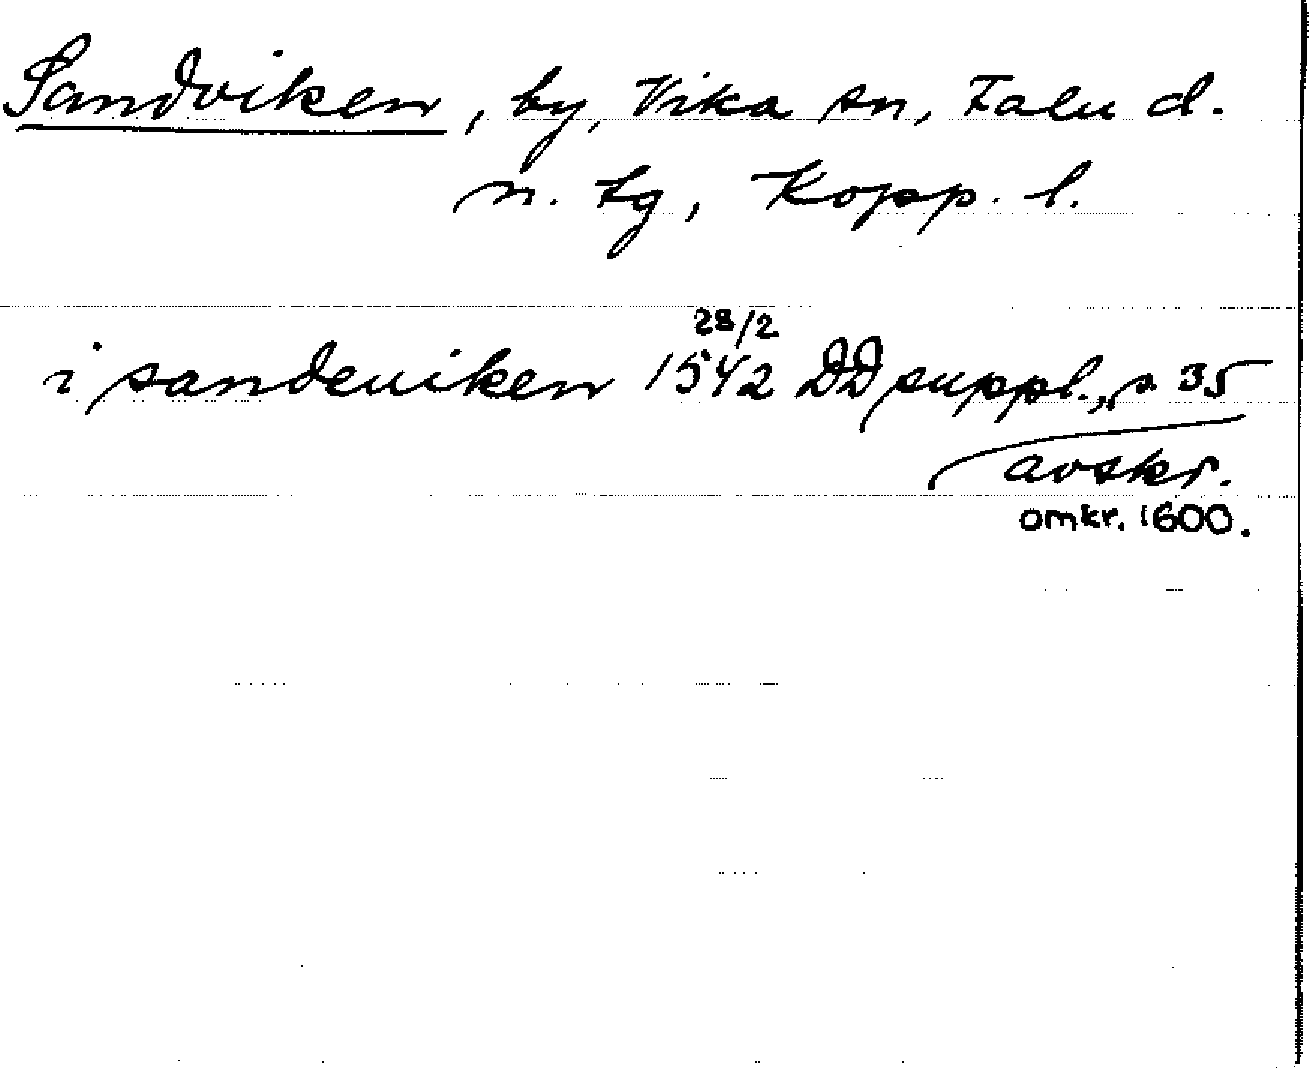 Sandviken, by, Vika sn, Falu d.
n. tg, Kopp. l.
28/2
i sandeuiken 1542 DD suppl., s 35
avskr.
omkr. 1600.